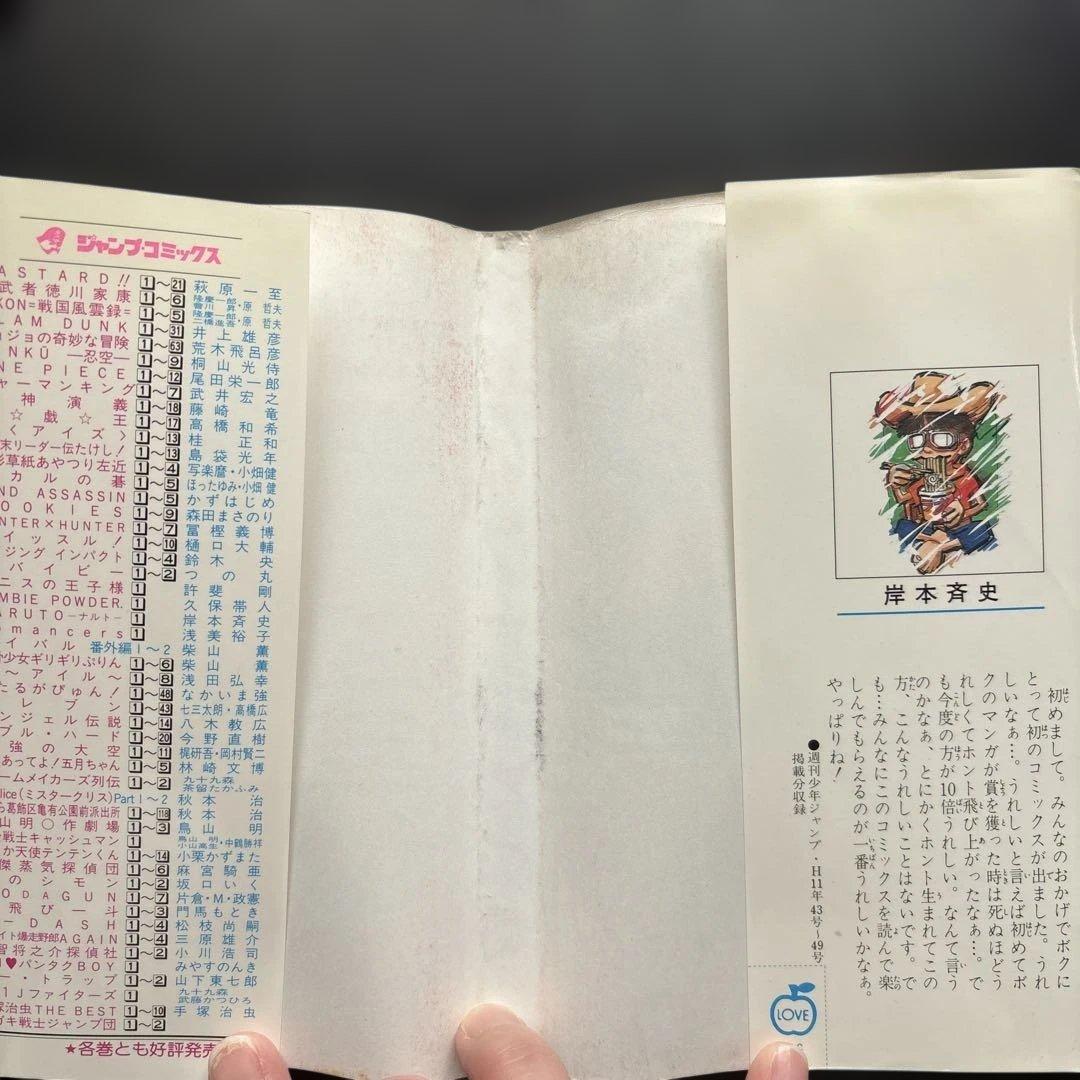 ジャンプ・コミックス
ASTARD!! 1〜21 萩原一至
武者徳川家康 1〜6 隆慶一郎・會川昇・原哲夫
KON=戦国風雲録= 1〜5 隆慶一郎・二橋進吾・原哲夫
LAM DUNK 1〜31 井上雄彦
ョジョの奇妙な冒険 1〜63 荒木飛呂彦
NKŪ ―忍空― 1〜9 桐山光侍
NE PIECE 1〜12 尾田栄一郎
ャーマンキング 1〜7 武井宏之
神演義 1〜18 藤崎竜
☆戯☆王 1〜17 高橋和希
くアイズ〉 1〜13 桂正和
末リーダー伝たけし! 1〜13 島袋光年
彡草紙あやつり左近 1〜4 写楽麿・小畑健
カルの碁 1〜5 ほったゆみ・小畑健
ND ASSASSIN 1〜5 かずはじめ
OOKIES 1〜9 森田まさのり
NTER×HUNTER 1〜7 冨樫義博
イッスル! 1〜10 樋口大輔
イジング インパクト 1〜4 鈴木央
バイビー 1〜2 つの丸
ニスの王子様 1 許斐剛
MBIE POWDER. 1 久保帯人
ARUTO―ナルト― 1 岸本斉史
omancers 1 浅美裕子
イバル 番外編1〜2 柴山薫
骨少女ギリギリぷりん 1〜6 柴山薫
〜アイル〜 1〜8 浅田弘幸
たるがぴゅん! 1〜48 なかいま強
レブン 1〜43 七三太朗・高橋広
ンジェル伝説 1〜14 八木教広
ブル・ハード 1〜20 今野直樹
強の大空 1〜11 梶研吾・岡村賢二
あってよ!五月ちゃん 1〜5 林崎文博
ームメイカーズ列伝 1〜2 九十九森・茶留たかふみ
lice(ミスタークリス)Part1〜2 秋本治
ら葛飾区亀有公園前派出所 1〜118 秋本治
山明〇作劇場 1〜3 鳥山明
戦士キャッシュマン 1 鳥山明・小山高生・中鶴勝祥
か天使テンテンくん 1〜14 小栗かずまた
傑蒸気探偵団 1〜6 麻宮騎亜
のシモン 1〜2 坂口いく
ODAGUN 1〜7 片倉・M・政憲
飛び一斗 1〜3 門馬もとき
-DASH 1〜4 松枝尚嗣
イト爆走野郎AGAIN 1〜4 三原雄介
智将之介探偵社 1〜2 小川浩司
♥パンタクBOY 1 みやすのんき
ー・トラップ 1〜2 山下東七郎
1Jファイターズ 1 九十九森・武藤かつひろ
塚治虫THE BEST 1〜10 手塚治虫
ガキ戦士ジャンプ団 1〜2
★各巻とも好評発売
岸本斉史
初めまして。みんなのおかげでボクに
とって初のコミックスが出ました。うれ
しいなぁ…。うれしいと言えば初めてボ
クのマンガが賞を獲った時は死ぬほどう
れしくてホント飛び上がったなぁ…。で
も今度の方が10倍うれしい。なんて言う
のかなぁ、とにかくホント生まれてこの
方、こんなうれしいことはないです。で
も…みんなにこのコミックスを読んで楽
しんでもらえるのが一番うれしいかなぁ。
やっぱりね!
●週刊少年ジャンプ・H11年43号〜49号
掲載分収録
LOVE